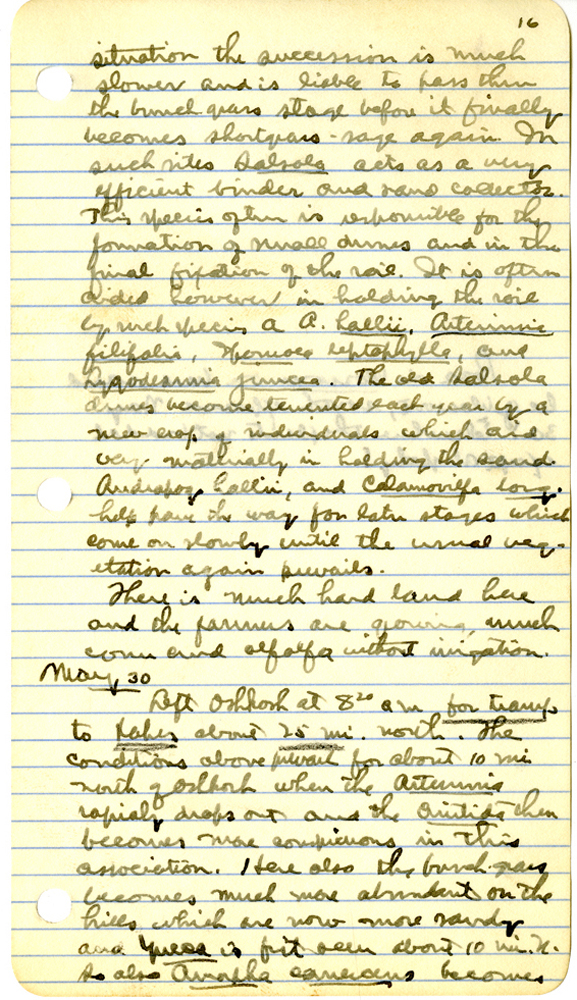 16
situation the succession is much
slower and is liable to pass thru
the bunch grass stage before it finally
becomes shortgrass-sage again. In
such sites Salsola acts as a very
efficient binder and sand collector.
This species often is responsible for the
formation of small dunes and in the
final fixation of the soil. It is often
aided however in holding the soil
by such species a A. hallii, Artemisia
filifolia, Ipomoea leptophylla, and
Lygodesmia juncea. The old Salsola
dunes become tenented each year by a
new crop of individuals which aid
very materially in holding the sand.
Andropog hallii, and Calamovilfa long.
help pave the way for later stages which
come on slowly until the usual veg-
etation again prevails.
There is much hard land here
and the farmers are growing much
corn and alfalfa without irrigation.
May 30
Left Oshkosh at 8 20 a m for tramp
to Lakes about 25 mi. north. The
conditions above prevail for about 10 mi
north of Oshkosh when the Artemisia
rapidly drops out and the Aristida then
becomes more conspicuous in this
association. Here also the bunch-grass
becomes much more abundant on the
hills which are now more sandy
and Yucca is first seen about 10 mi. N.
So also Amorpha canescens becomes